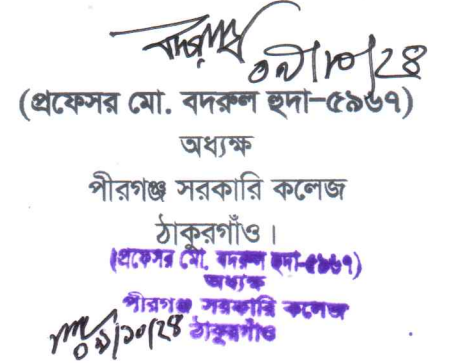 ০৯/১০/২৪
(প্রফেসর মো. বদরুল হুদা-৫৯৬৭)
অধ্যক্ষ
পীরগঞ্জ সরকারি কলেজ
ঠাকুরগাঁও।
(প্রফেসর মো. বদরুল হুদা-৫৯৬৭)
অধ্যক্ষ
পীরগঞ্জ সরকারি কলেজ
ঠাকুরগাঁও
০৯/১০/২৪